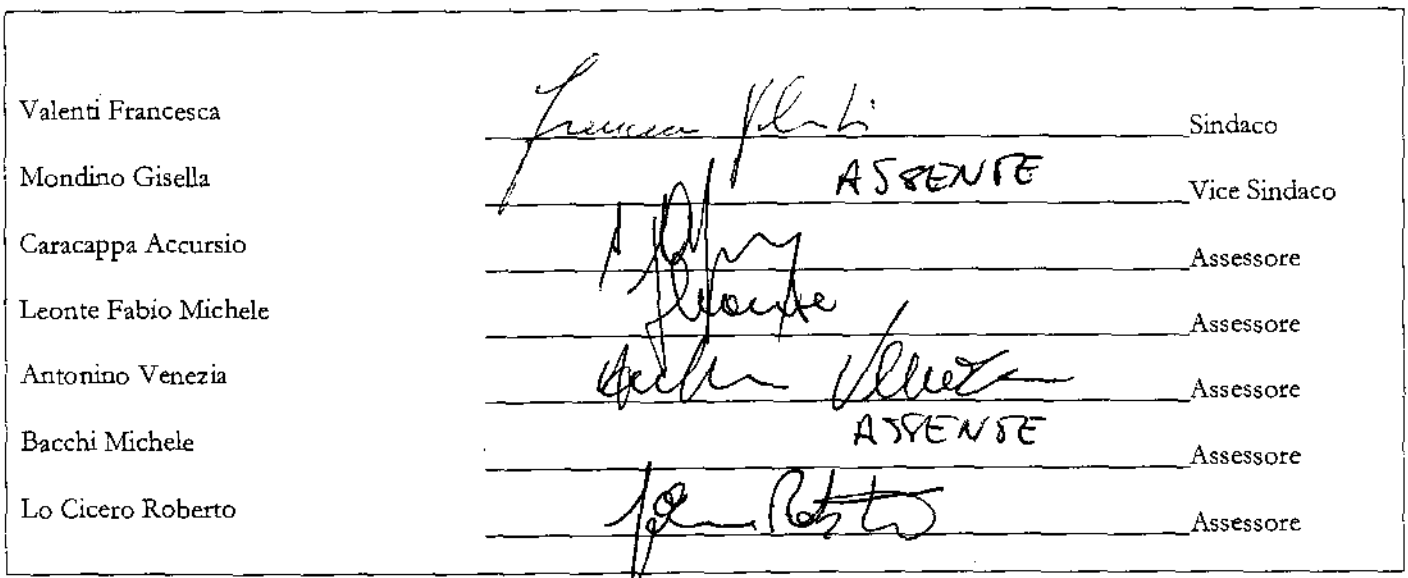 Valenti Francesca Francesca Valenti Sindaco
Mondino Gisella ASSENTE Vice Sindaco
Caracappa Accursio Assessore
Leonte Fabio Michele Assessore
Antonino Venezia Assessore
Bacchi Michele ASSENTE Assessore
Lo Cicero Roberto Assessore